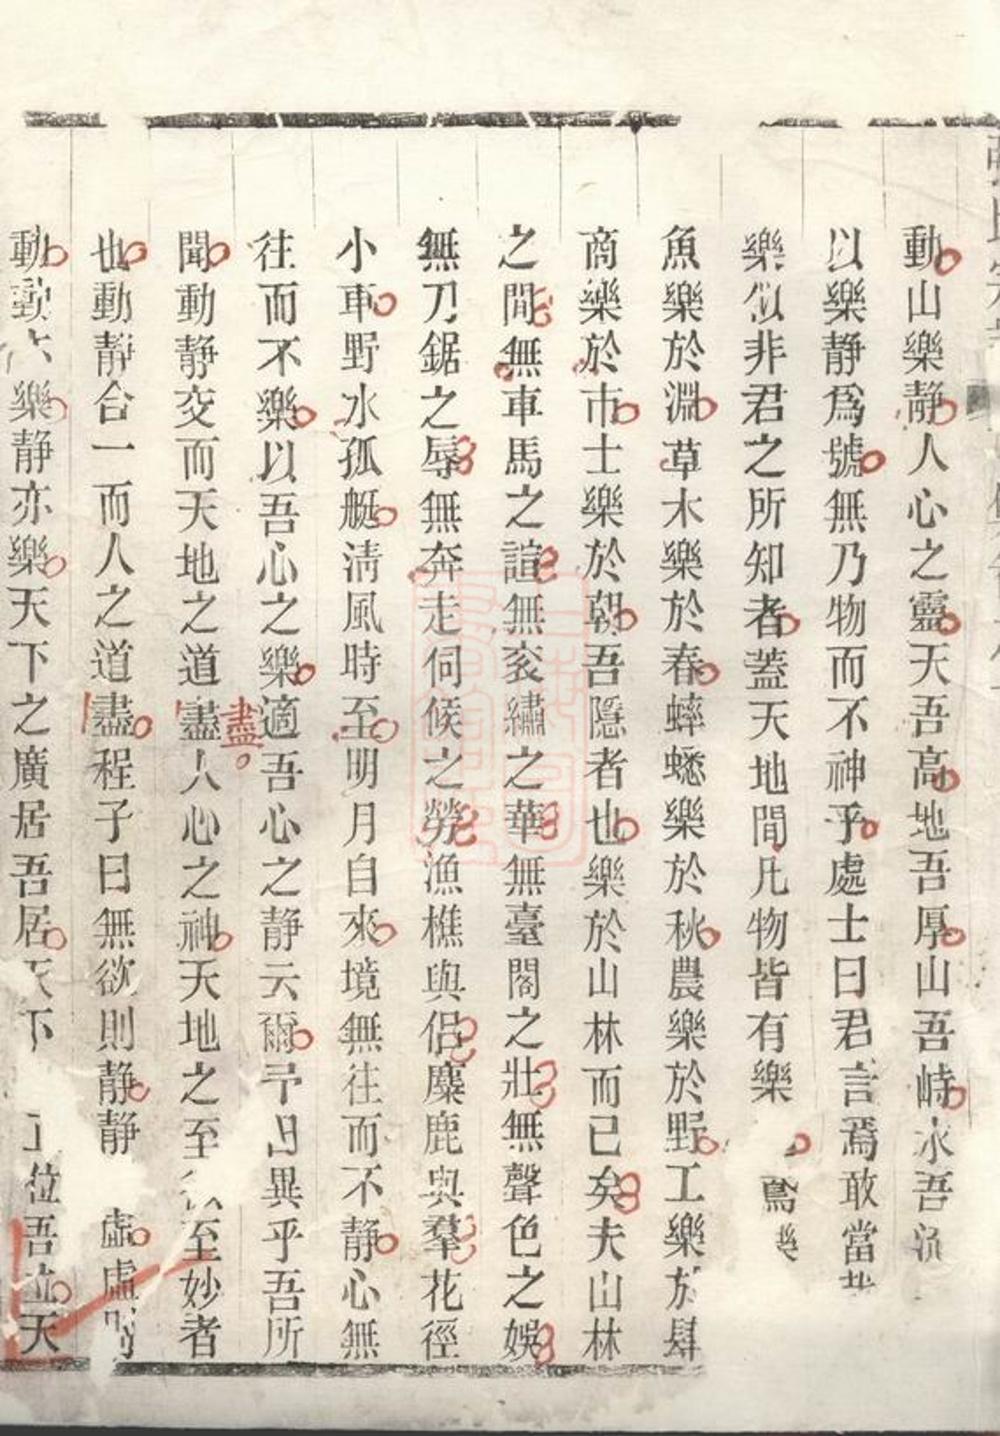 動山樂靜人心之靈天吾高地吾厚山吾峙水吾
以樂靜爲號無乃物而不神乎處士曰君言焉敢當
樂似非君之所知者蓋天地間凡物皆有樂 鳶樂
魚樂於淵草木樂於春蟀蟋樂於秋農樂於野工樂於肆
商樂於市士樂於朝吾隱者也樂於山林而已矣夫山林
之間無車馬之諠無衮繡之華無臺閣之壯無聲色之娛
無刀鋸之辱無奔走伺候之勞漁樵與侶麋鹿與羣花徑
小車野水孤艇淸風時至明月自來境無往而不靜心無
往而不樂以吾心之樂適吾心之靜云爾予曰異乎吾所
盡
聞動靜交而天地之道盡人心之神天地之至 至妙者
也動靜合一而人之道盡程子曰無欲則靜靜 虛虛
動動亦樂靜亦樂天下之廣居吾居天下 正位吾位天